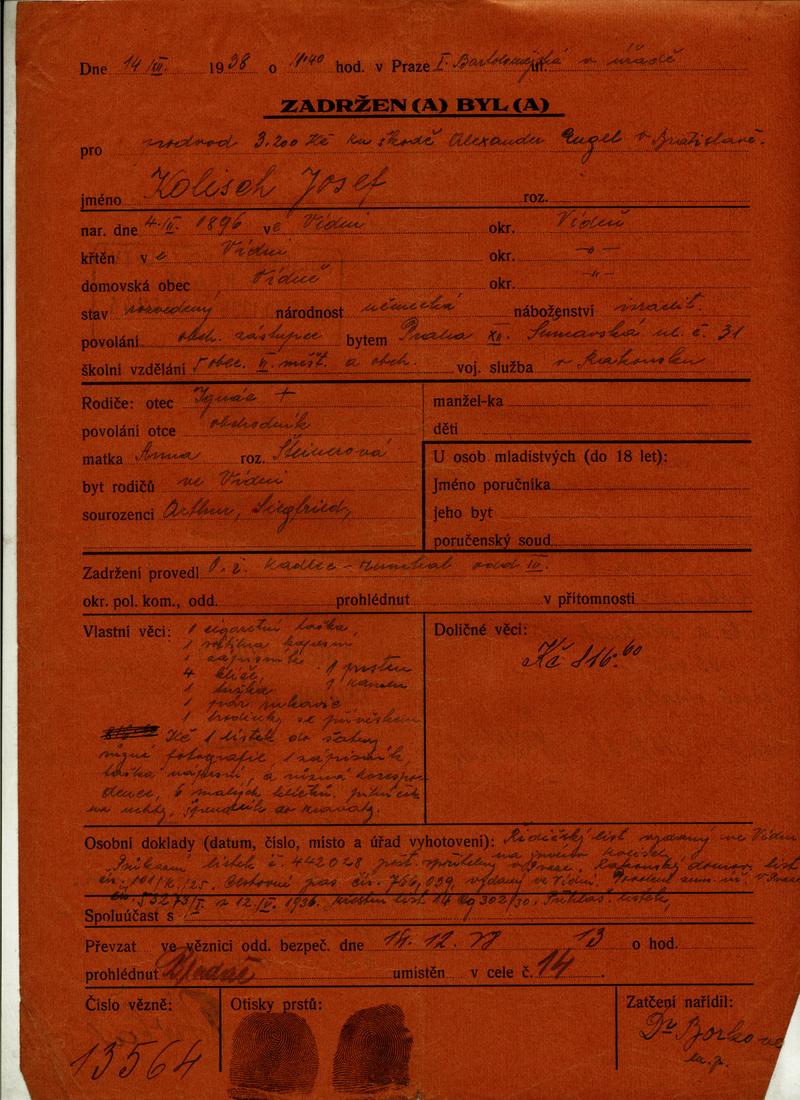 Dne 14/XII. 1938 o 11.40 hod. v Praze I. Bartolomějská ul. v úřadě
ZADRŽEN(A) BYL(A)
pro podvod 3.200 Kč ku škodě Alexander Engel v Bratislavě.
jméno Kolisch Josef roz.
nar. dne 4./II. 1896 ve Vídni okr. Vídeň
křtěn v e Vídni okr. -"-
domovská obec Vídeň okr. -"-
stav rozvedený národnost německá náboženství izraelit.
povolání obch. zástupce bytem Praha XII. Šumavská ul. č. 31
školní vzdělání 5 obec. II. měšť. a obch. voj. služba v Rakousku
Rodiče: otec Ignác +
povolání otce obchodník
matka Anna roz. Steinerová
byt rodičů ve Vídni
sourozenci Arthur, Siegfried,
manžel-ka
děti
U osob mladistvých (do 18 let):
Jméno poručníka
jeho byt
poručenský soud
Zadržení provedl Kadlec odd IV.
okr. pol. kom., odd. prohlédnut v přítomnosti
Vlastní věci: 1 cigaretní taška,
1 kapesní
1 zápisník 1 prsten
4 klíče,
1 tužka
1 pár rukavic
1 hodinky se přívěskem
Kč 1 lístek do šatny
různé fotografie, 1 zápisník,
taška náprsní, a různá korespon
dence, 6 malých
na nehty, špendlík do kravaty.
Doličné věci:
Kč 816.60
Osobní doklady (datum, číslo, místo a úřad vyhotovení): Řidičský list vydaný ve Vídni
Průkazní lístek č. 442028 na jméno Kolisch, Rakouský domov. list
čís. 101/K./25. Cestovní pas čís. 766,039 vydaný ve Vídni. v Praze
čís. 53273/I z 12./II. 1936. 14 302/30. Přihláš. lístek,
Spoluúčast s
Převzat ve věznici odd. bezpeč. dne 14. 12. 38 13 o hod.
prohlédnut umístěn v cele č. 14.
Číslo vězně:
13564
Otisky prstů:
Zatčení nařídil:
Dr Borkovec
m.p.